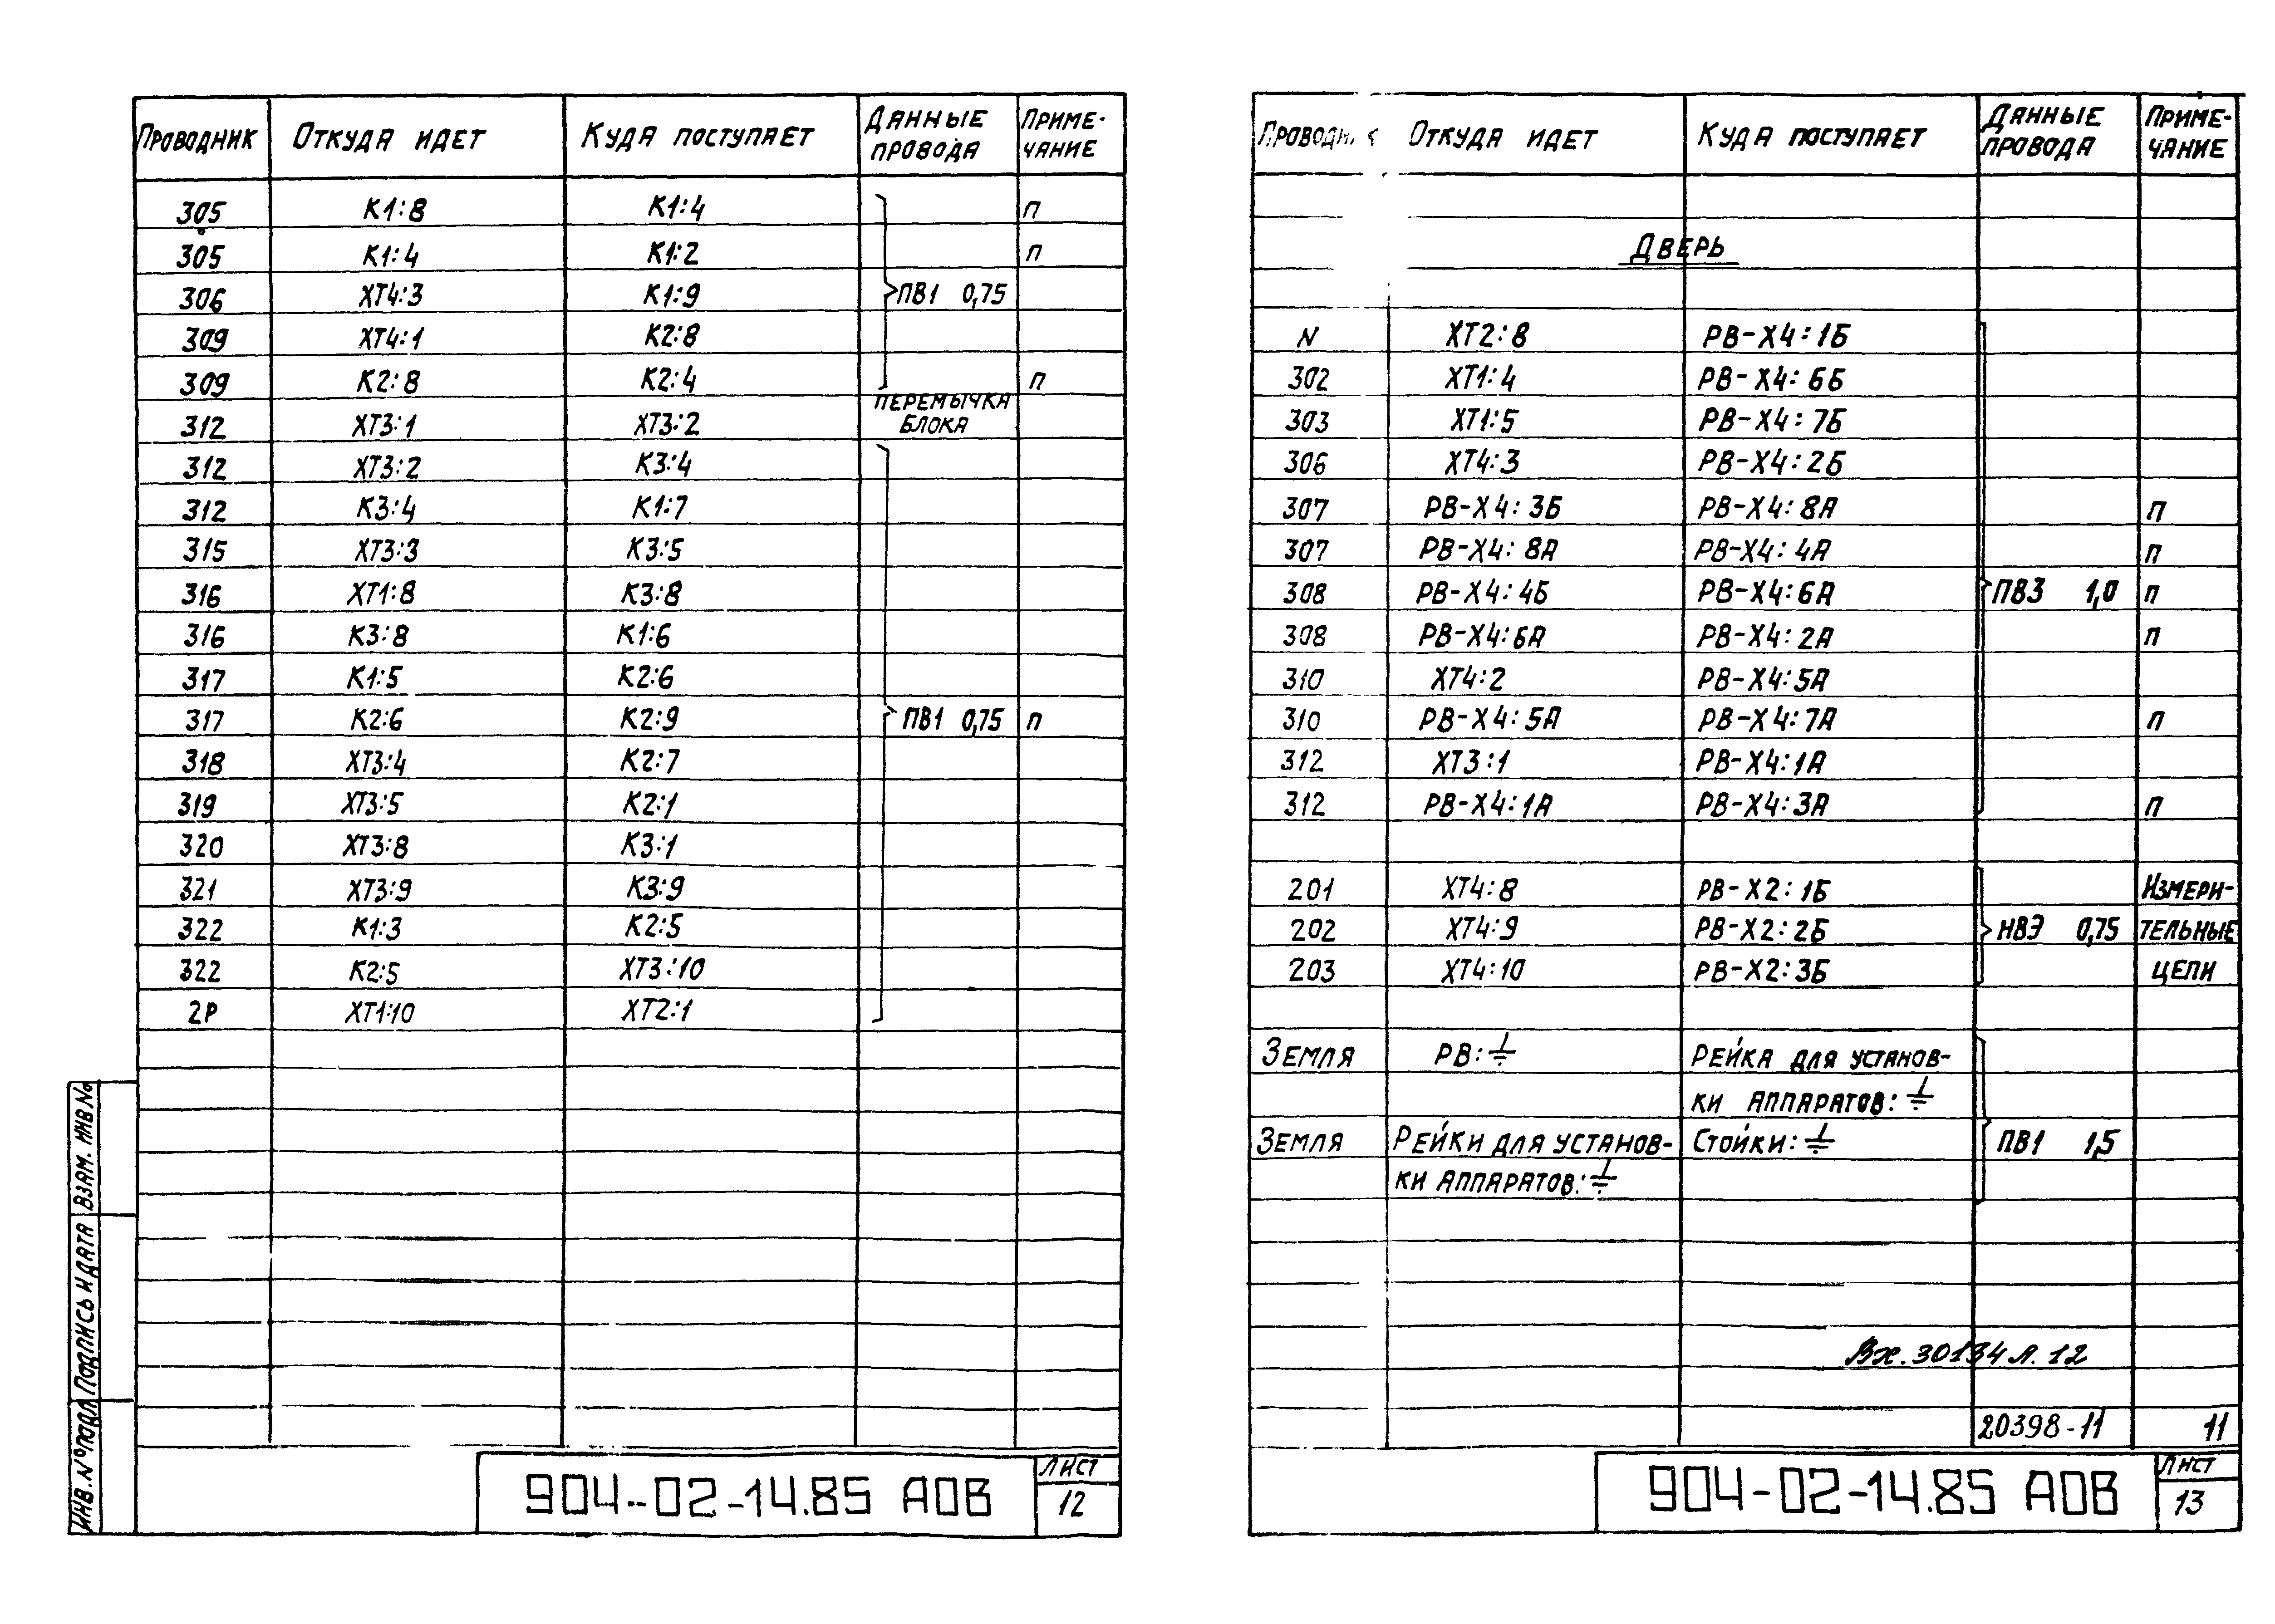 Проводник Откуда идет Куда поступает Данные провода Приме-чание
305 К1:8 К1:4 п
305 К1:4 К1:2 п
306 ХТ4:3 К1:9 ПВ1 0,75
309 ХТ4:1 К2:8
309 К2:8 К2:4 п
312 ХТ3:1 ХТ3:2 перемычка блока
312 ХТ3:2 К3:4
312 К3:4 К1:7
315 ХТ3:3 К3:5
316 ХТ1:8 К3:8
316 К3:8 К1:6
317 К1:5 К2:6
317 К2:6 К2:9 ПВ1 0,75 п
318 ХТ3:4 К2:7
319 ХТ3:5 К2:1
320 ХТ3:8 К3:1
321 ХТ3:9 К3:9
322 К1:3 К2:5
322 К2:5 ХТ3:10
2Р ХТ1:10 ХТ2:1
Инв. № подл Подпись и дата Взам. инв №
904-02-14.85 АОВ
Лист
12
Проводник Откуда идет Куда поступает Данные провода Приме-чание
Дверь
N ХТ2:8 РВ-Х4:1Б
302 ХТ1:4 РВ-Х4:6Б
303 ХТ1:5 РВ-Х4:7Б
306 ХТ4:3 РВ-Х4:2Б
307 РВ-Х4:3Б РВ-Х4:8А п
307 РВ-Х4:8А РВ-Х4:4А п
308 РВ-Х4:4Б РВ-Х4:6А ПВ3 1,0 п
308 РВ-Х4:6А РВ-Х4:2А п
310 ХТ4:2 РВ-Х4:5А
310 РВ-Х4:5А РВ-Х4:7А п
312 ХТ3:1 РВ-Х4:1А
312 РВ-Х4:1А РВ-Х4:3А п
201 ХТ4:8 РВ-Х2:1Б Измери-
202 ХТ4:9 РВ-Х2:2Б НВЭ 0,75 тельные
203 ХТ4:10 РВ-Х2:3Б цепи
Земля РВ:⏚ Рейка для установ-
ки аппаратов:⏚
Земля Рейки для установ- Стойки:⏚ ПВ1 1,5
ки аппаратов:⏚
Вх. 30134 л. 12
20398-11 11
904-02-14.85 АОВ
Лист
13